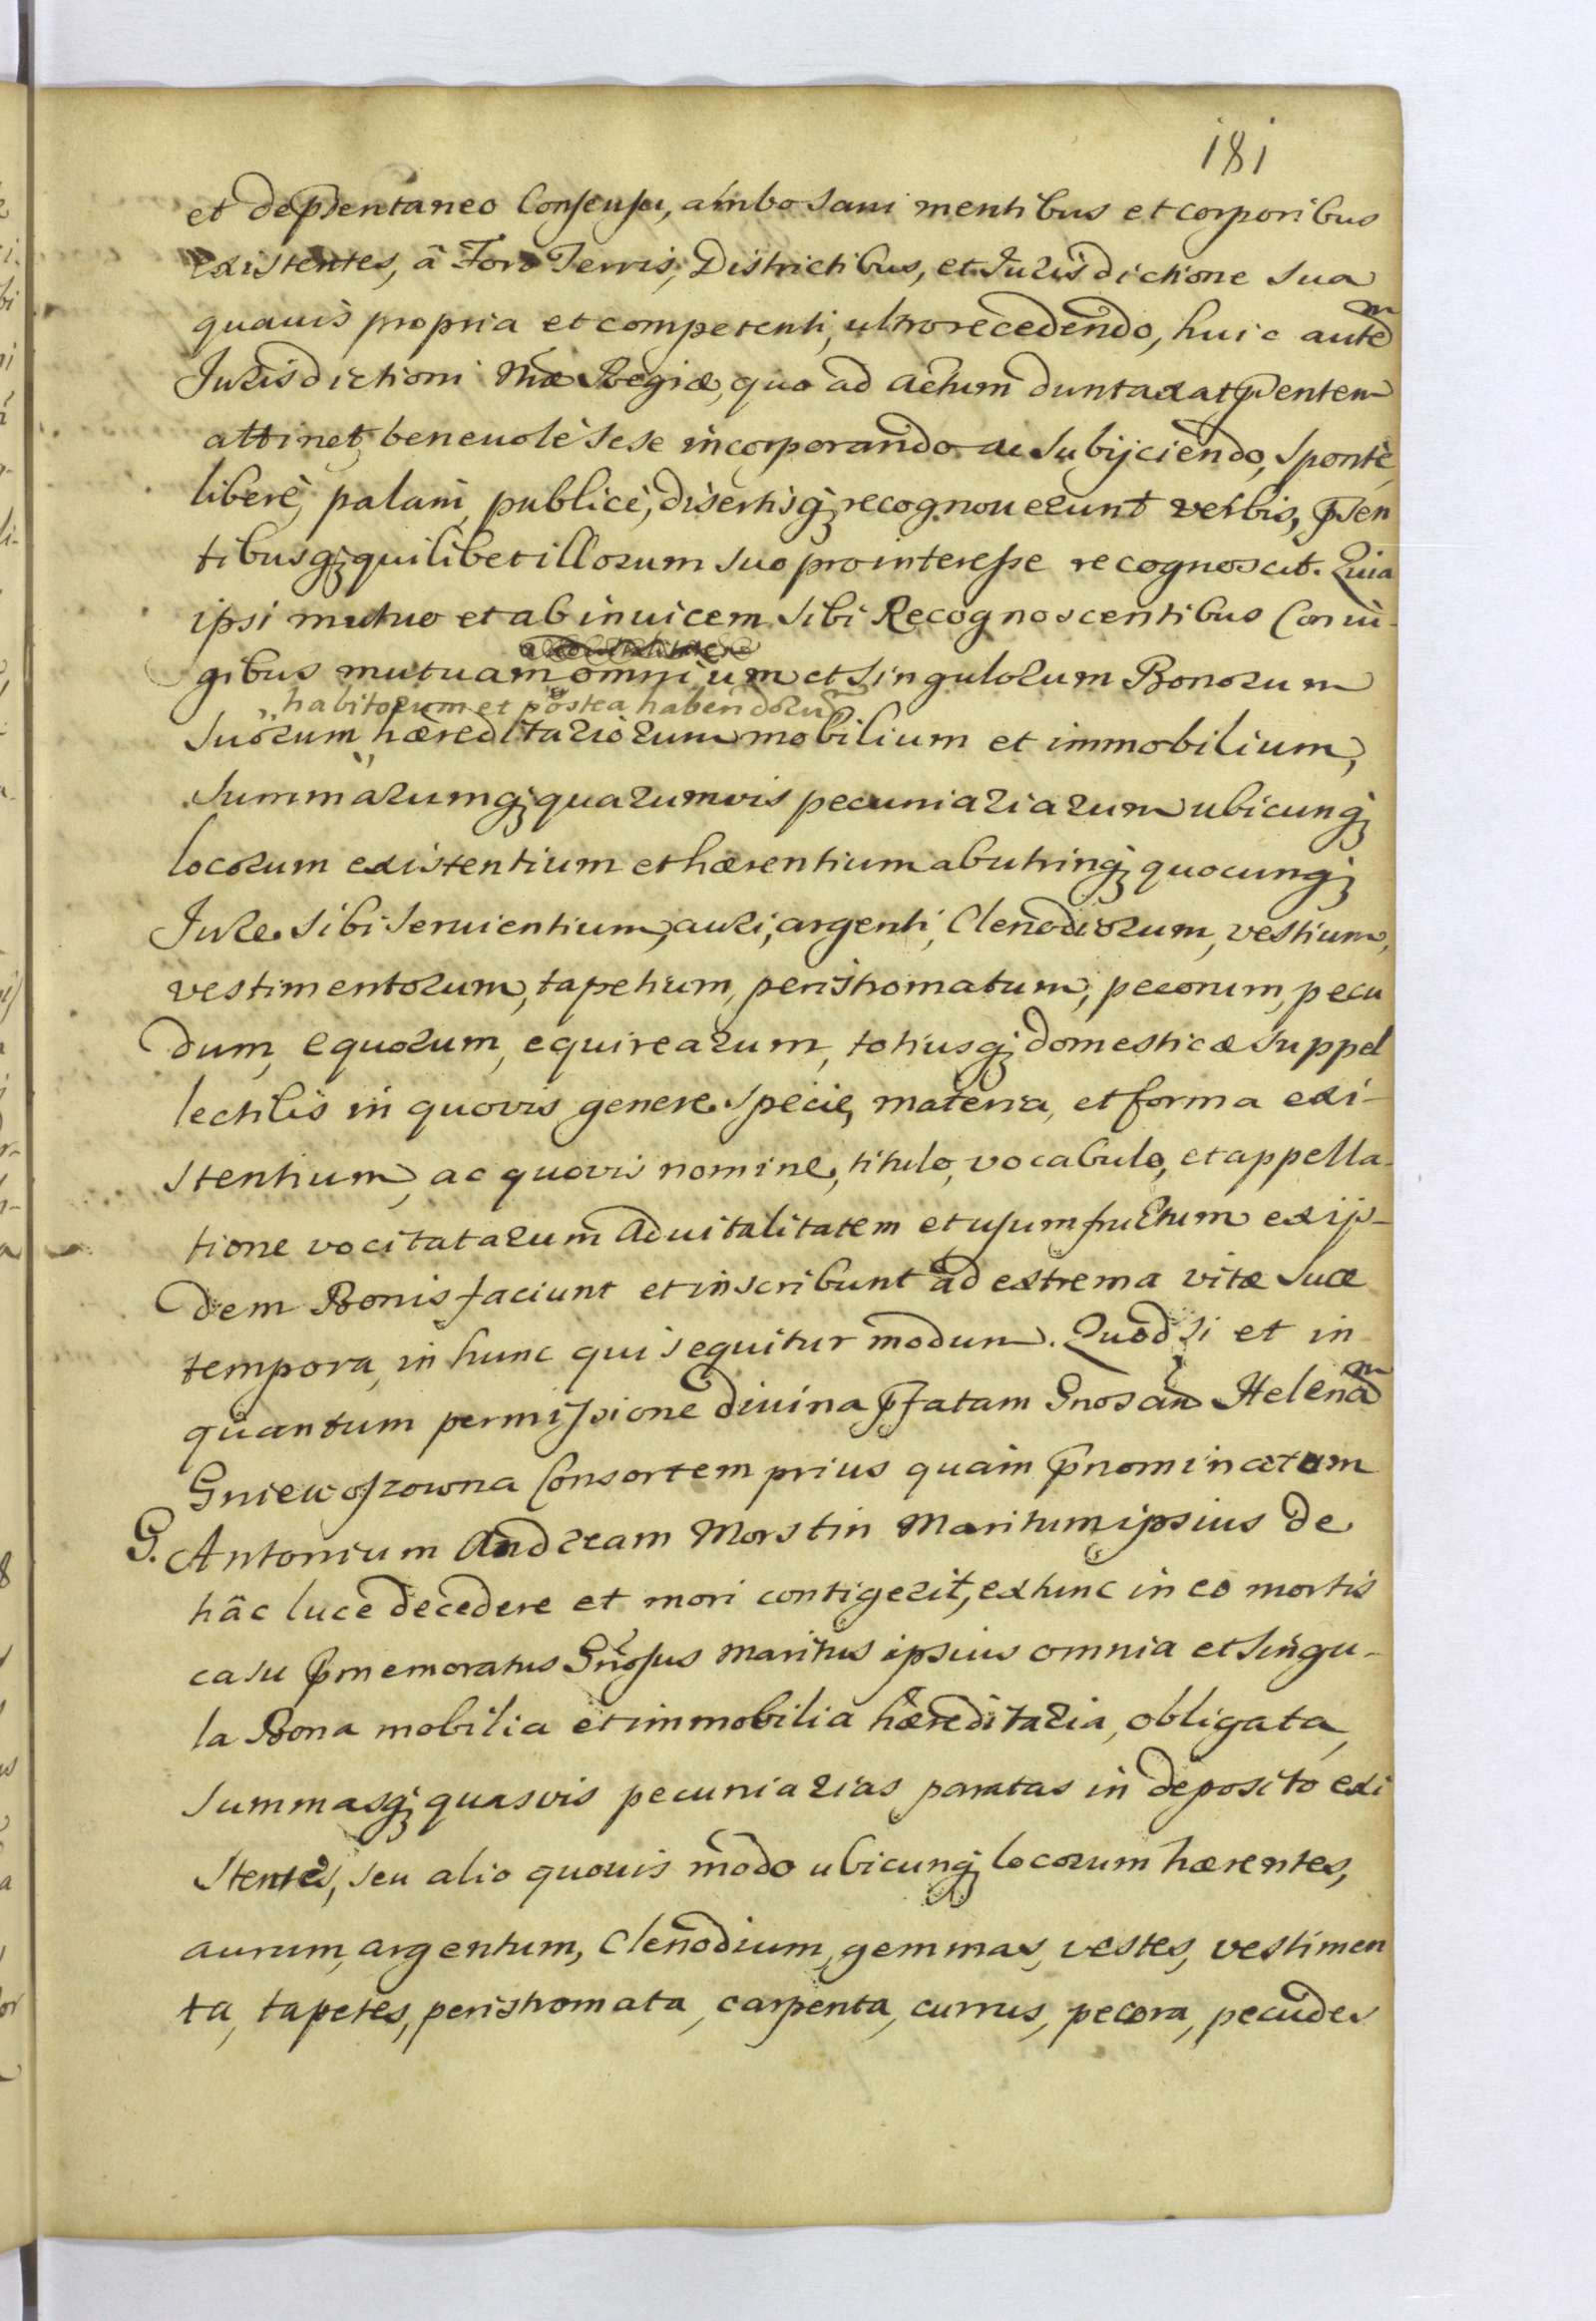 181
et depsentaneo Consensu, ambo sani mentibus et corporibus
existentes, â Foro Terris, Districtibus, et Jurisdictione sua
quavis propria et competenti, ultro recedendo, huic autem
Jurisdictioni Nrae Regiae, quo ad actum duntaxat psentem
attinet, benevolè sese incorporando ac subijciendo, spontè,
liberè, palam, publicè, disertisq; recognoverunt verbis, psen
tibusq; quilibet illorum suo pro interesse recognoscit. Quia
ipsi mutuo et ab invicem sibi Recognoscentibus Coniu-
gibus mutuam omnium et singulorum Bonorum
habitorum et postea habendorum
suorum haereditariorum mobilium et immobilium,
summarumq; quarumvis pecuniariarum ubicunq;
locorum existentium et haerentium ab utrinq; quocunq;
Jure sibi servientium, auri, argenti, Clenodiorum, vestium,
vestimentorum, tapetium, peristromatum, pecorum, pecu
dum, equorum, equirearum, totiusq; domesticae suppel
lectilis in quovis genere, specie, materia, et forma exi-
stentium, ac quovis nomine, titulo, vocabulo, et appella-
tione vocitatarum advitalitatem et usumfructum ex ijs-
dem Bonis faciunt et inscribunt ad extrema vitae suae
tempora, in hunc qui sequitur modum. Quod si et in
quantum permissione divina pfatam Gnosam Helenam
Gniewoszowna Consortem prius quam pnominatum
G. Antonium Andream Morstin Maritum ipsius de
hâc luce decedere et mori contigerit, ex tunc in eo mortis
casu pmemoratus Gnosus Maritus ipsius omnia et singu-
la Bona mobilia et immobilia haereditaria, obligata,
summasq; quasvis pecuniarias paratas in deposito exi
stentes, seu alio quovis modo ubicunq; locorum haerentes,
aurum, argentum, Clenodium, gemmas, vestes, vestimen
ta, tapetes, peristromata, carpenta, currus, pecora, pecudes